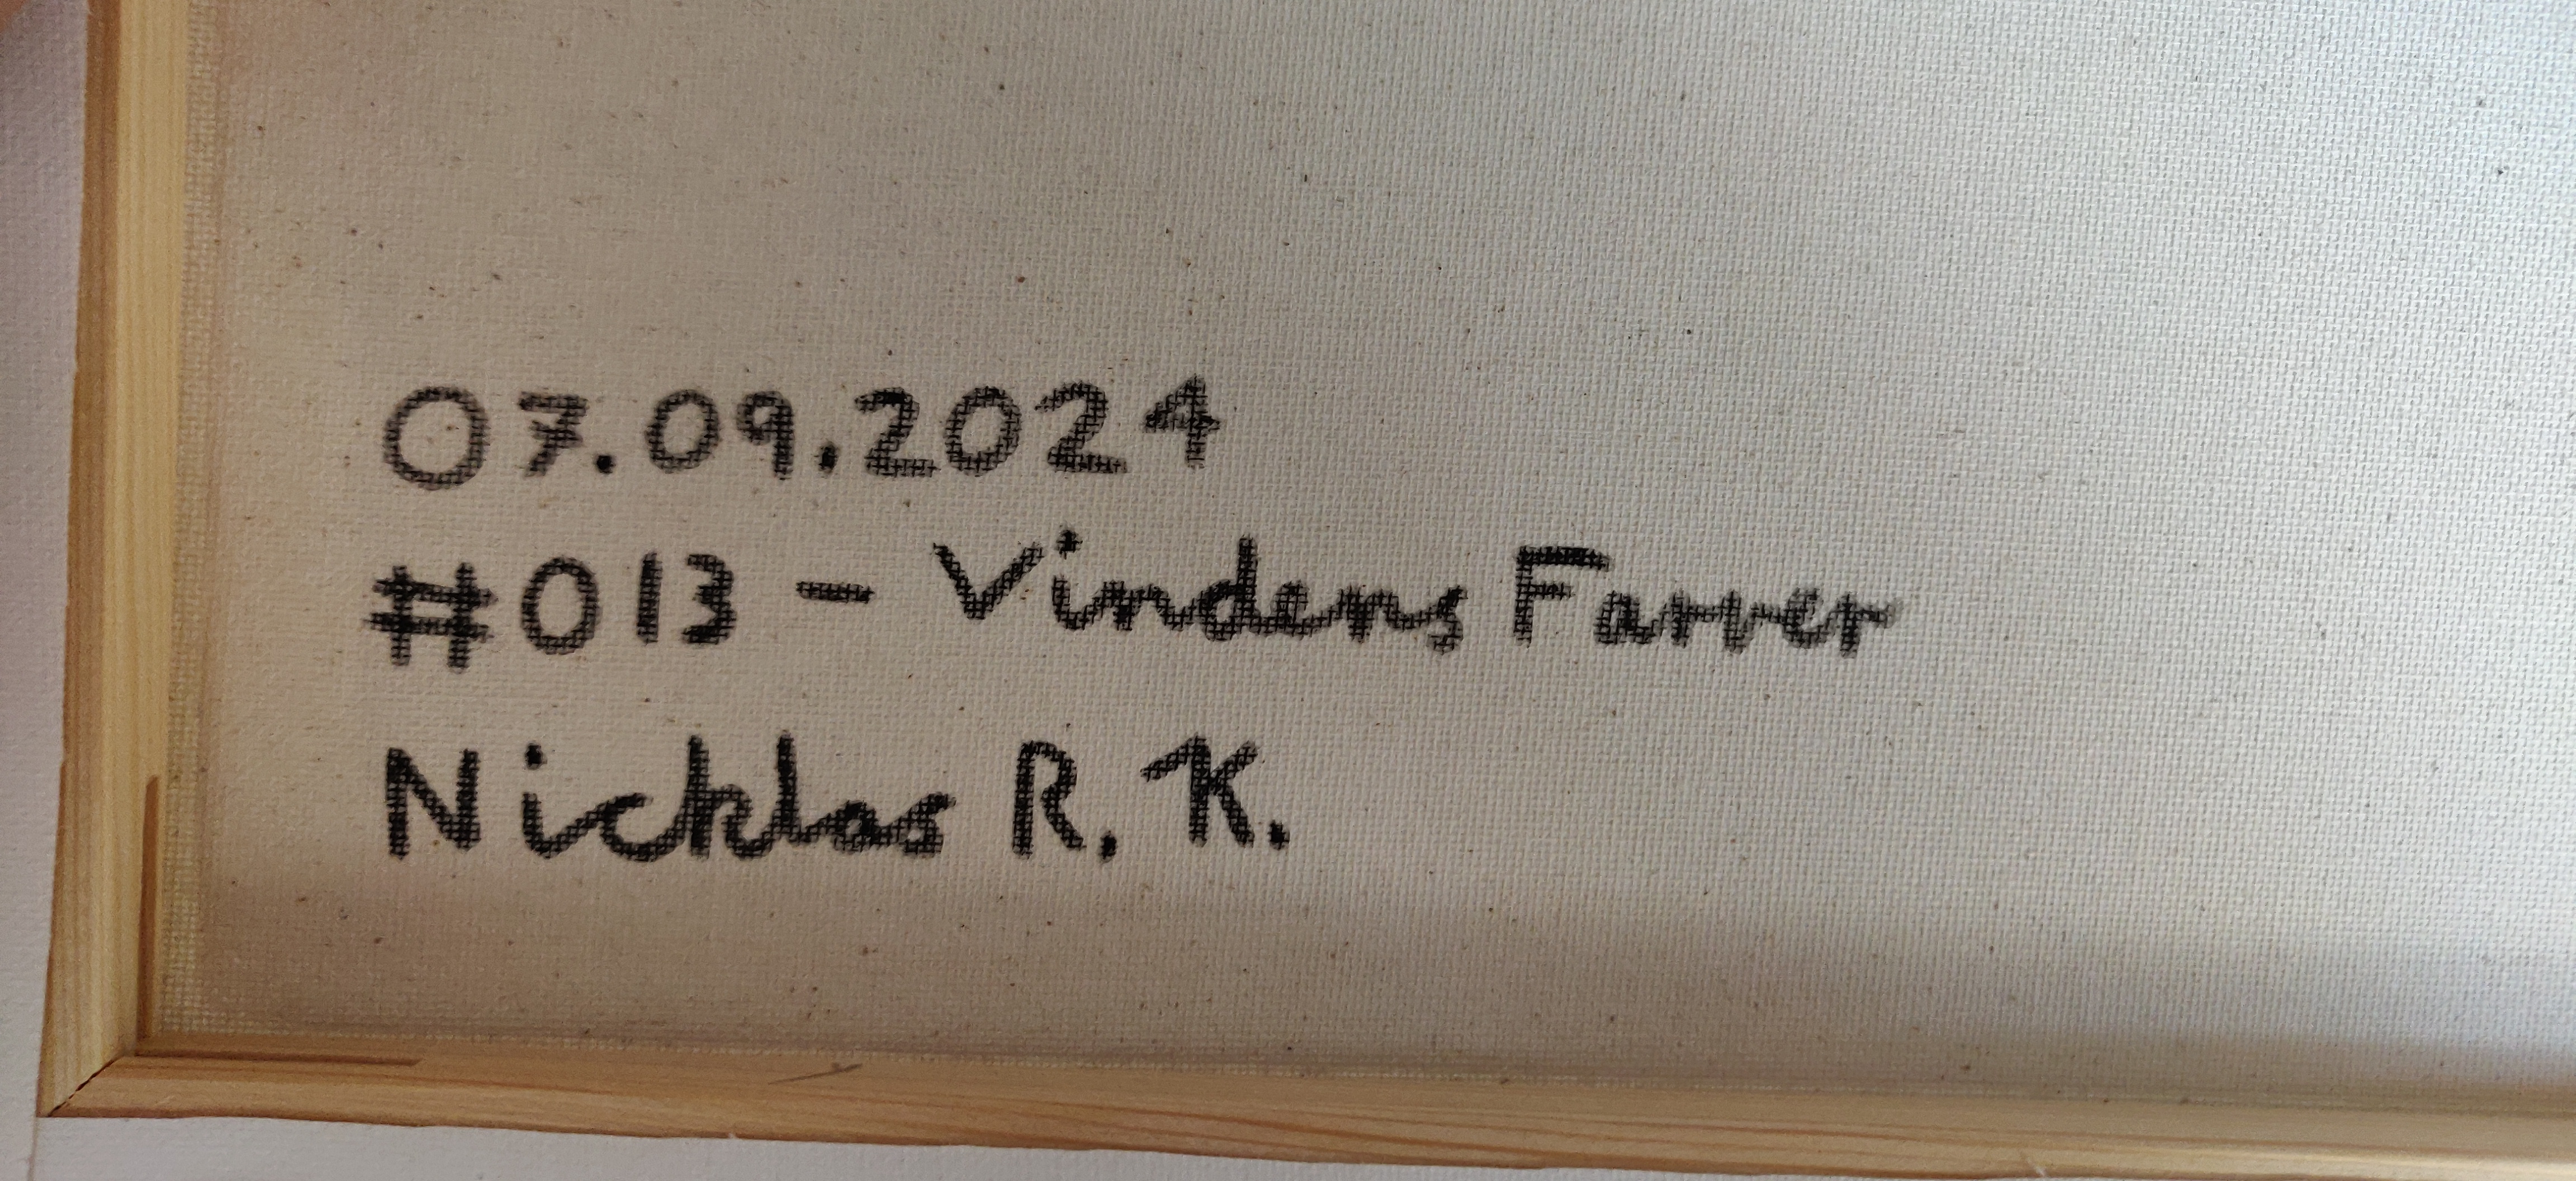 07.09.2024
#013 - Vindens Farver
Nicklas R. K.